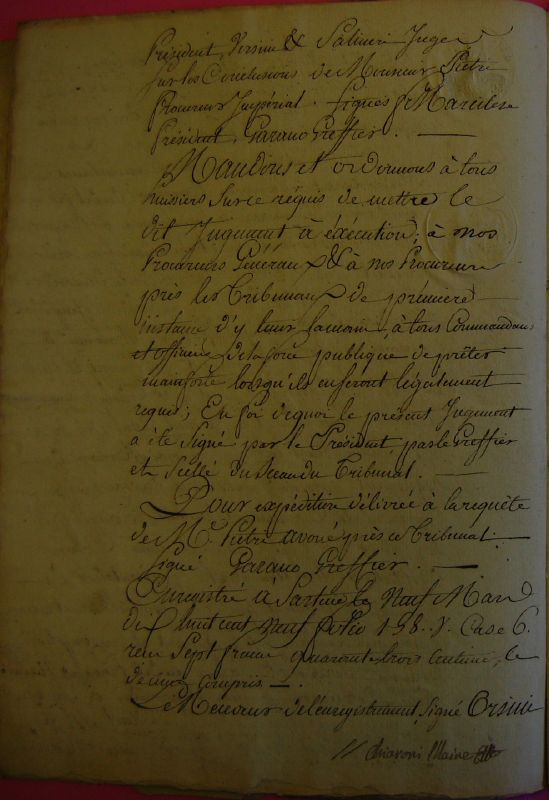 Président, Versini & Salineri Juges
sur les Conclusions de Monsieur Pietri
Procureur Impérial. Signés
Président, Pazano Greffier. —
Mandons et ordonnons à tous
huissiers sur ce réquis de mettre le
dit Jugement à éxécution; à nos
Procureurs Généraux & à nos Procureurs
près les Tribunaux de première
instance d'y tenir la main, à tous Commandans
et officiers de la force publique de prêter
mainforte lorsqu'ils en seront légalement
requis; En foi de quoi le présent Jugement
a été signé par le Président, par le Greffier
et Scellé du Sceau du Tribunal. —
Pour expédition délivrée à la requête
de Mr. Pietri avoué près ce Tribunal. —
Signé Pazano Greffier. —
Enregistré à Sartene le Neuf Mars
dix huit cent Neuf folio 198. V. Case 6.
reçu Sept francs quarante trois centimes, le
compris —.
Le Receveur de l'enregistrement, Signé Orsini
Chiaroni Maire